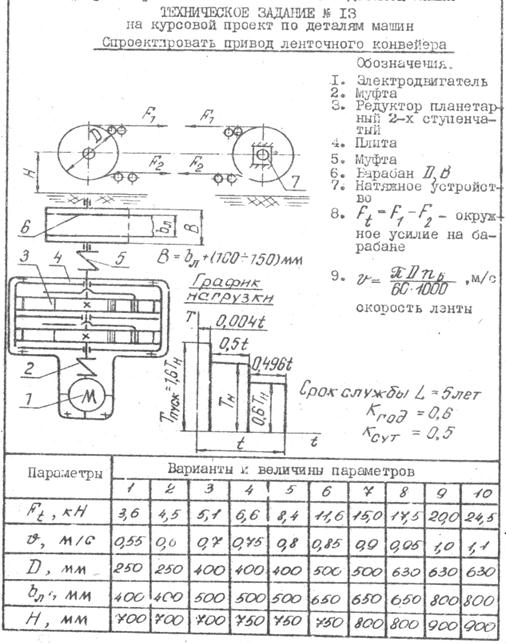 ТЕХНИЧЕСКОЕ ЗАДАНИЕ № 13
на курсовой проект по деталям машин
Спроектировать привод ленточного конвейера
Обозначения.
1. Электродвигатель
2. Муфта
3. Редуктор планетар-
ный 2-х ступенча-
тый
4. Плита
5. Муфта
6. Барабан D, B
7. Натяжное устройст-
во
8. Ft = F1 – F2 – окруж-
ное усилие на ба-
рабане
9. v = πDnб / 60·1000 , м/с
скорость ленты
F1 F1
D
H
F2 F2
7
6
bл B
5
B = bл + (100÷150) мм
3 4
2
1
М
График
нагрузки
T
0,004t
0,5t
0,496t
Tпуск = 1,6Tн
Tн
0,6Tн
t
t
Срок службы L = 5 лет
Kгод = 0,6
Kсут = 0,5
Параметры Варианты и величины параметров
1 2 3 4 5 6 7 8 9 10
Ft, кН 3,6 4,5 5,1 6,6 8,4 11,6 15,0 17,5 20,0 24,5
v, м/с 0,55 0,6 0,7 0,75 0,8 0,85 0,9 0,95 1,0 1,1
D, мм 250 250 400 400 400 500 500 630 630 630
bл, мм 400 400 500 500 500 650 650 650 800 800
H, мм 700 700 700 750 750 750 800 800 900 900